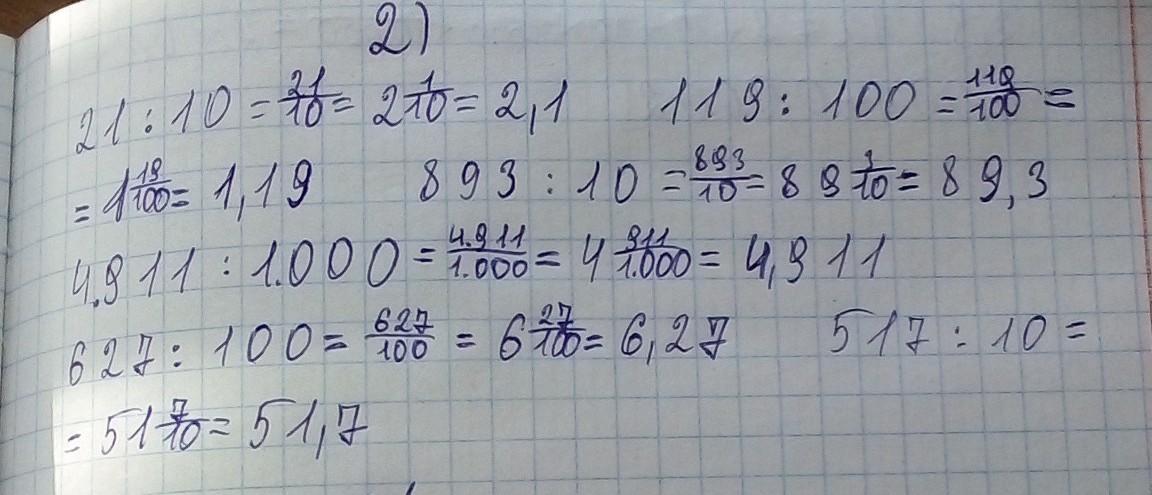 2)
21 : 10 = 21/10 = 2 1/10 = 2,1 119 : 100 = 119/100 =
= 1 19/100 = 1,19 893 : 10 = 893/10 = 89 3/10 = 89,3
4.911 : 1.000 = 4.911/1.000 = 4 911/1.000 = 4,911
627 : 100 = 627/100 = 6 27/100 = 6,27 517 : 10 =
= 51 7/10 = 51,7